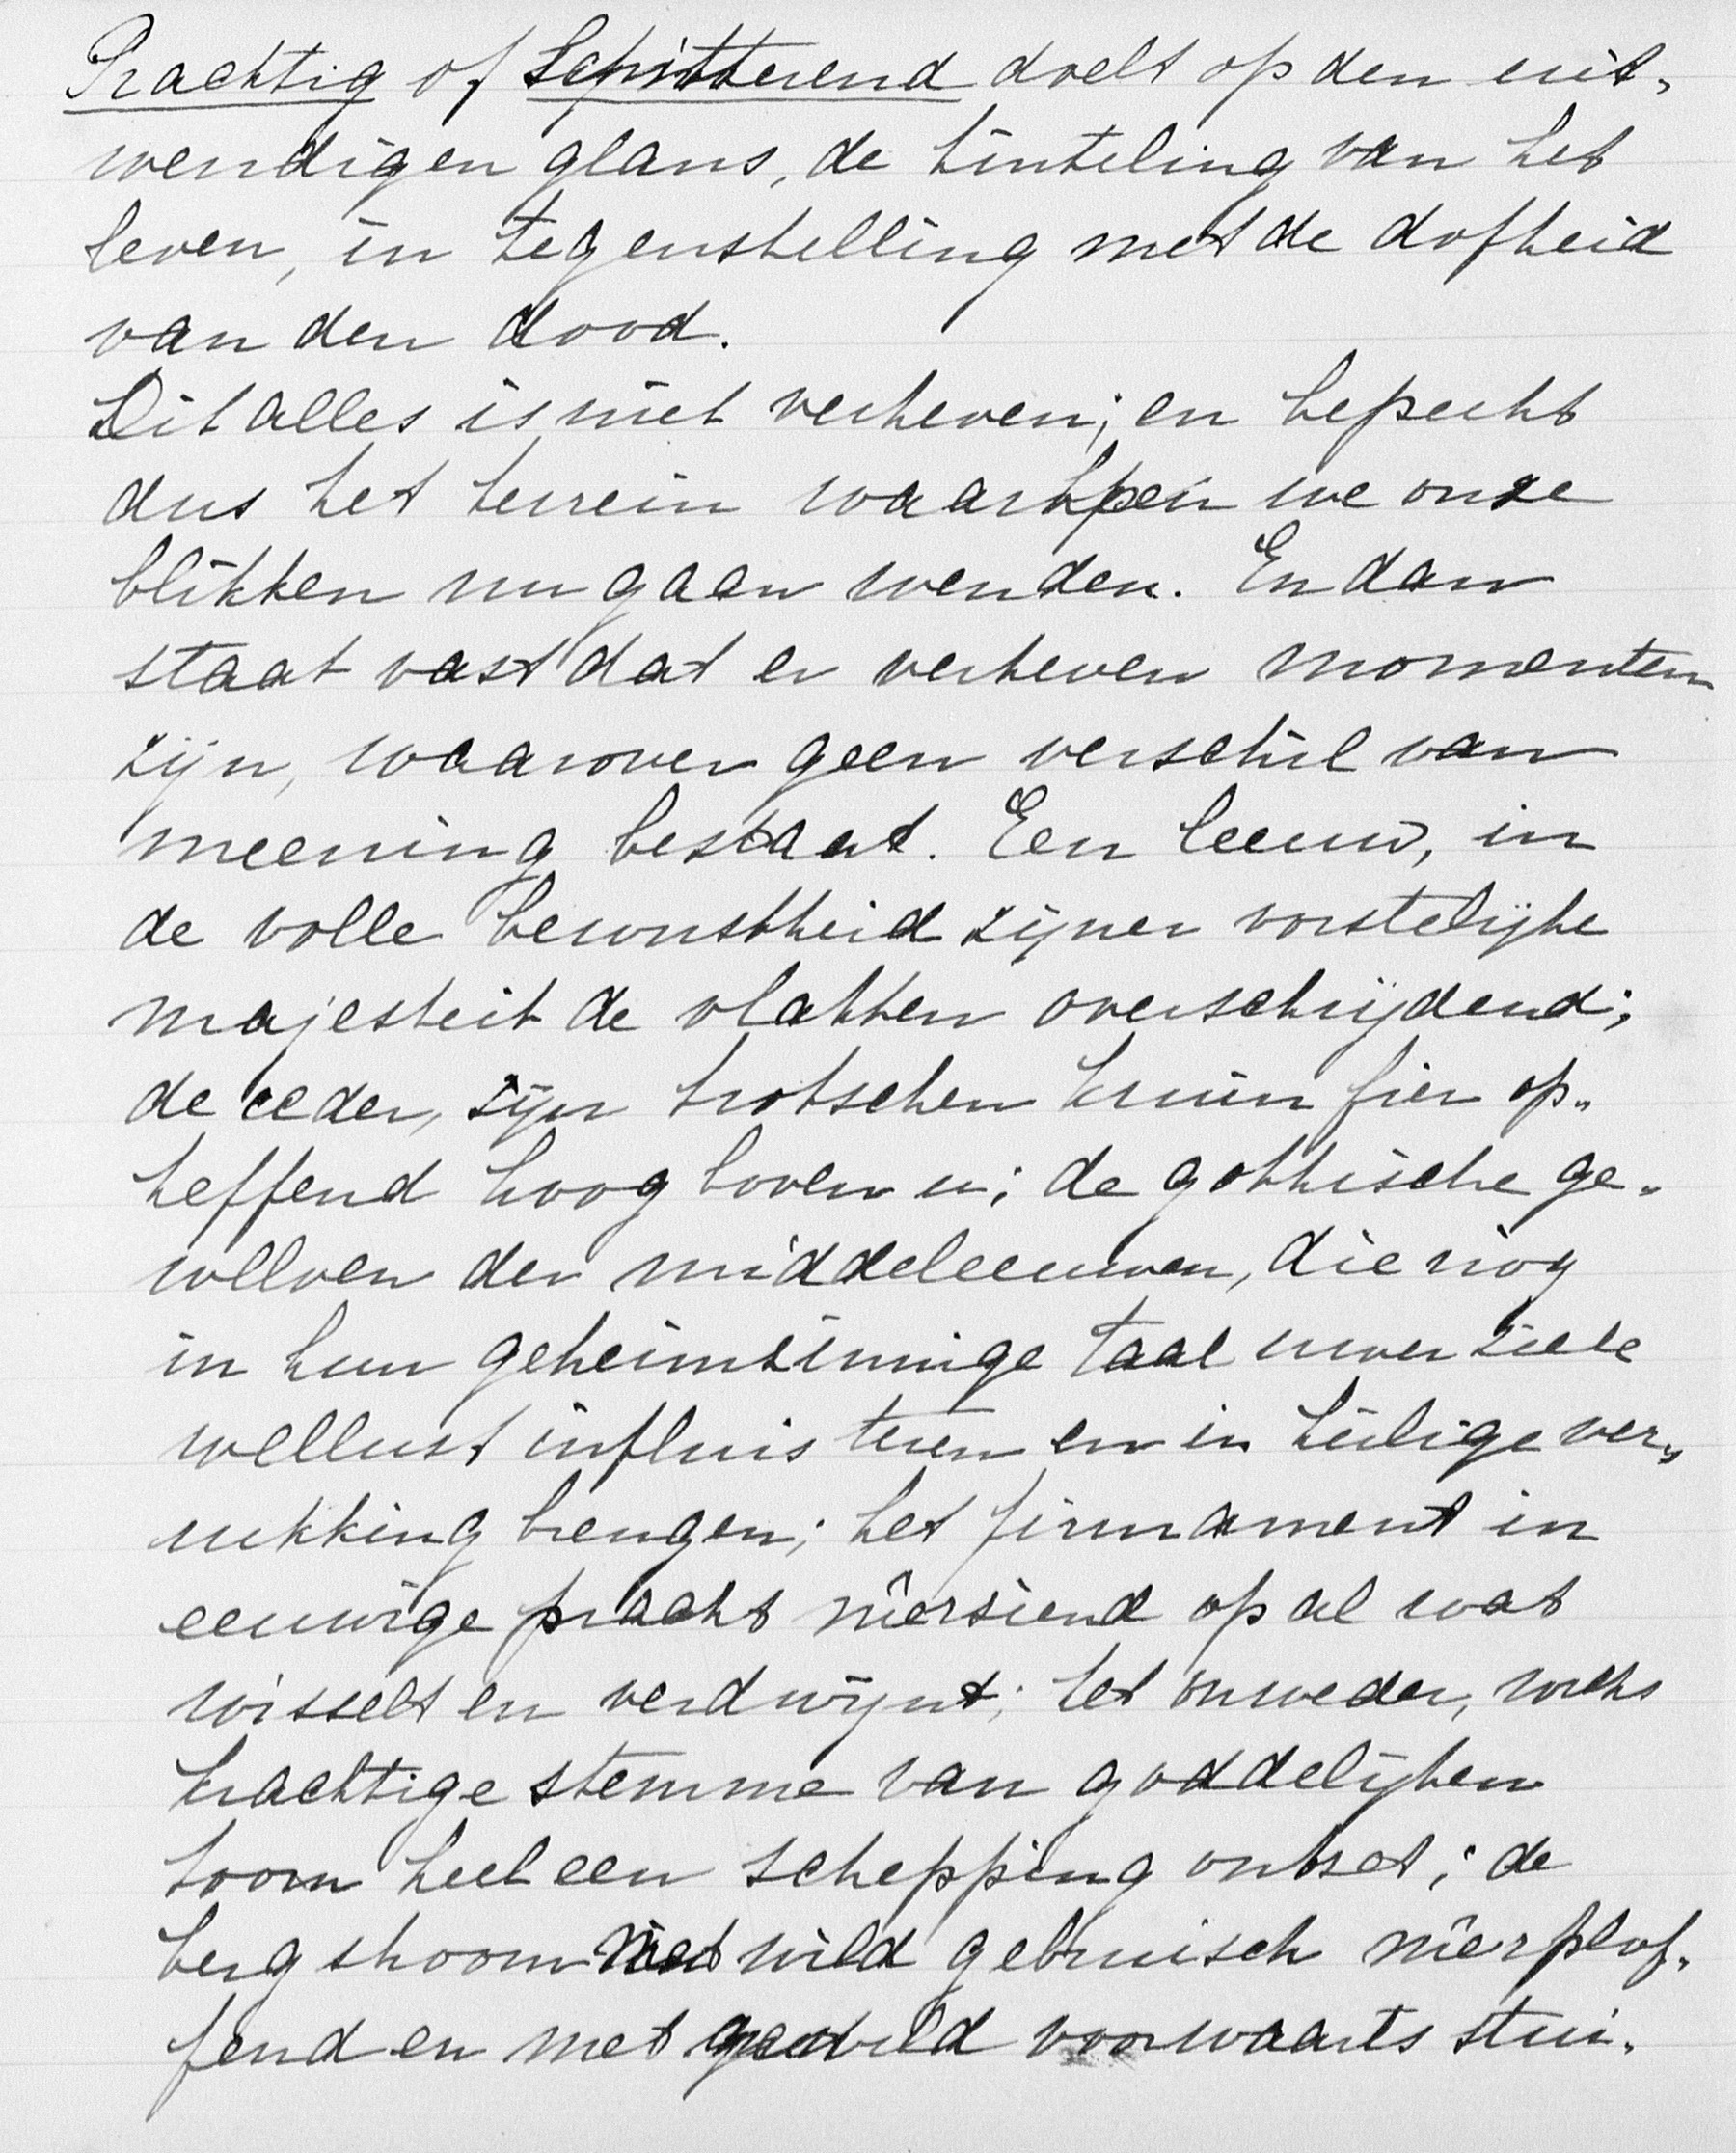 Prachtig of Schitterend doelt op den uit-
wendigen glans, de tinteling van het
leven, in tegenstelling met de dofheid
van den dood.
Dit alles is niet verheven; en beperkt
dus het terrein waarheen we onze
blikken nu gaan wenden. En dan
staat vast dat er verheven momenten
zijn, waarover geen verschil van
meening bestaat. Een leeuw, in
de volle bewustheid zijner vorstelijke
majesteit de vlakten overschrijdend;
de ceder, zijn trotschen kruin fier op-
heffend hoog boven u; de gothische ge-
welven der middeleeuwen, die nog
in hun geheimzinnige taal uwer ziele
wellust influisteren en in heilige ver-
rukking brengen; het firmament in
eeuwige pracht nêerziend op al wat
wisselt en verdwijnt; het onweder, welks
krachtige stemme van goddelijken
toorn heel een schepping ontzet; de
bergstroom met wild gebruisch nêerplof-
fend en met geweld voorwaarts stui-